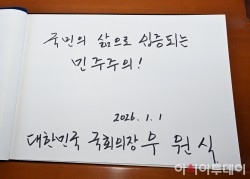 국민의 삶으로 실증되는
민주주의!
2026. 1. 1
대한민국 국회의장 우 원 식
아시아투데이